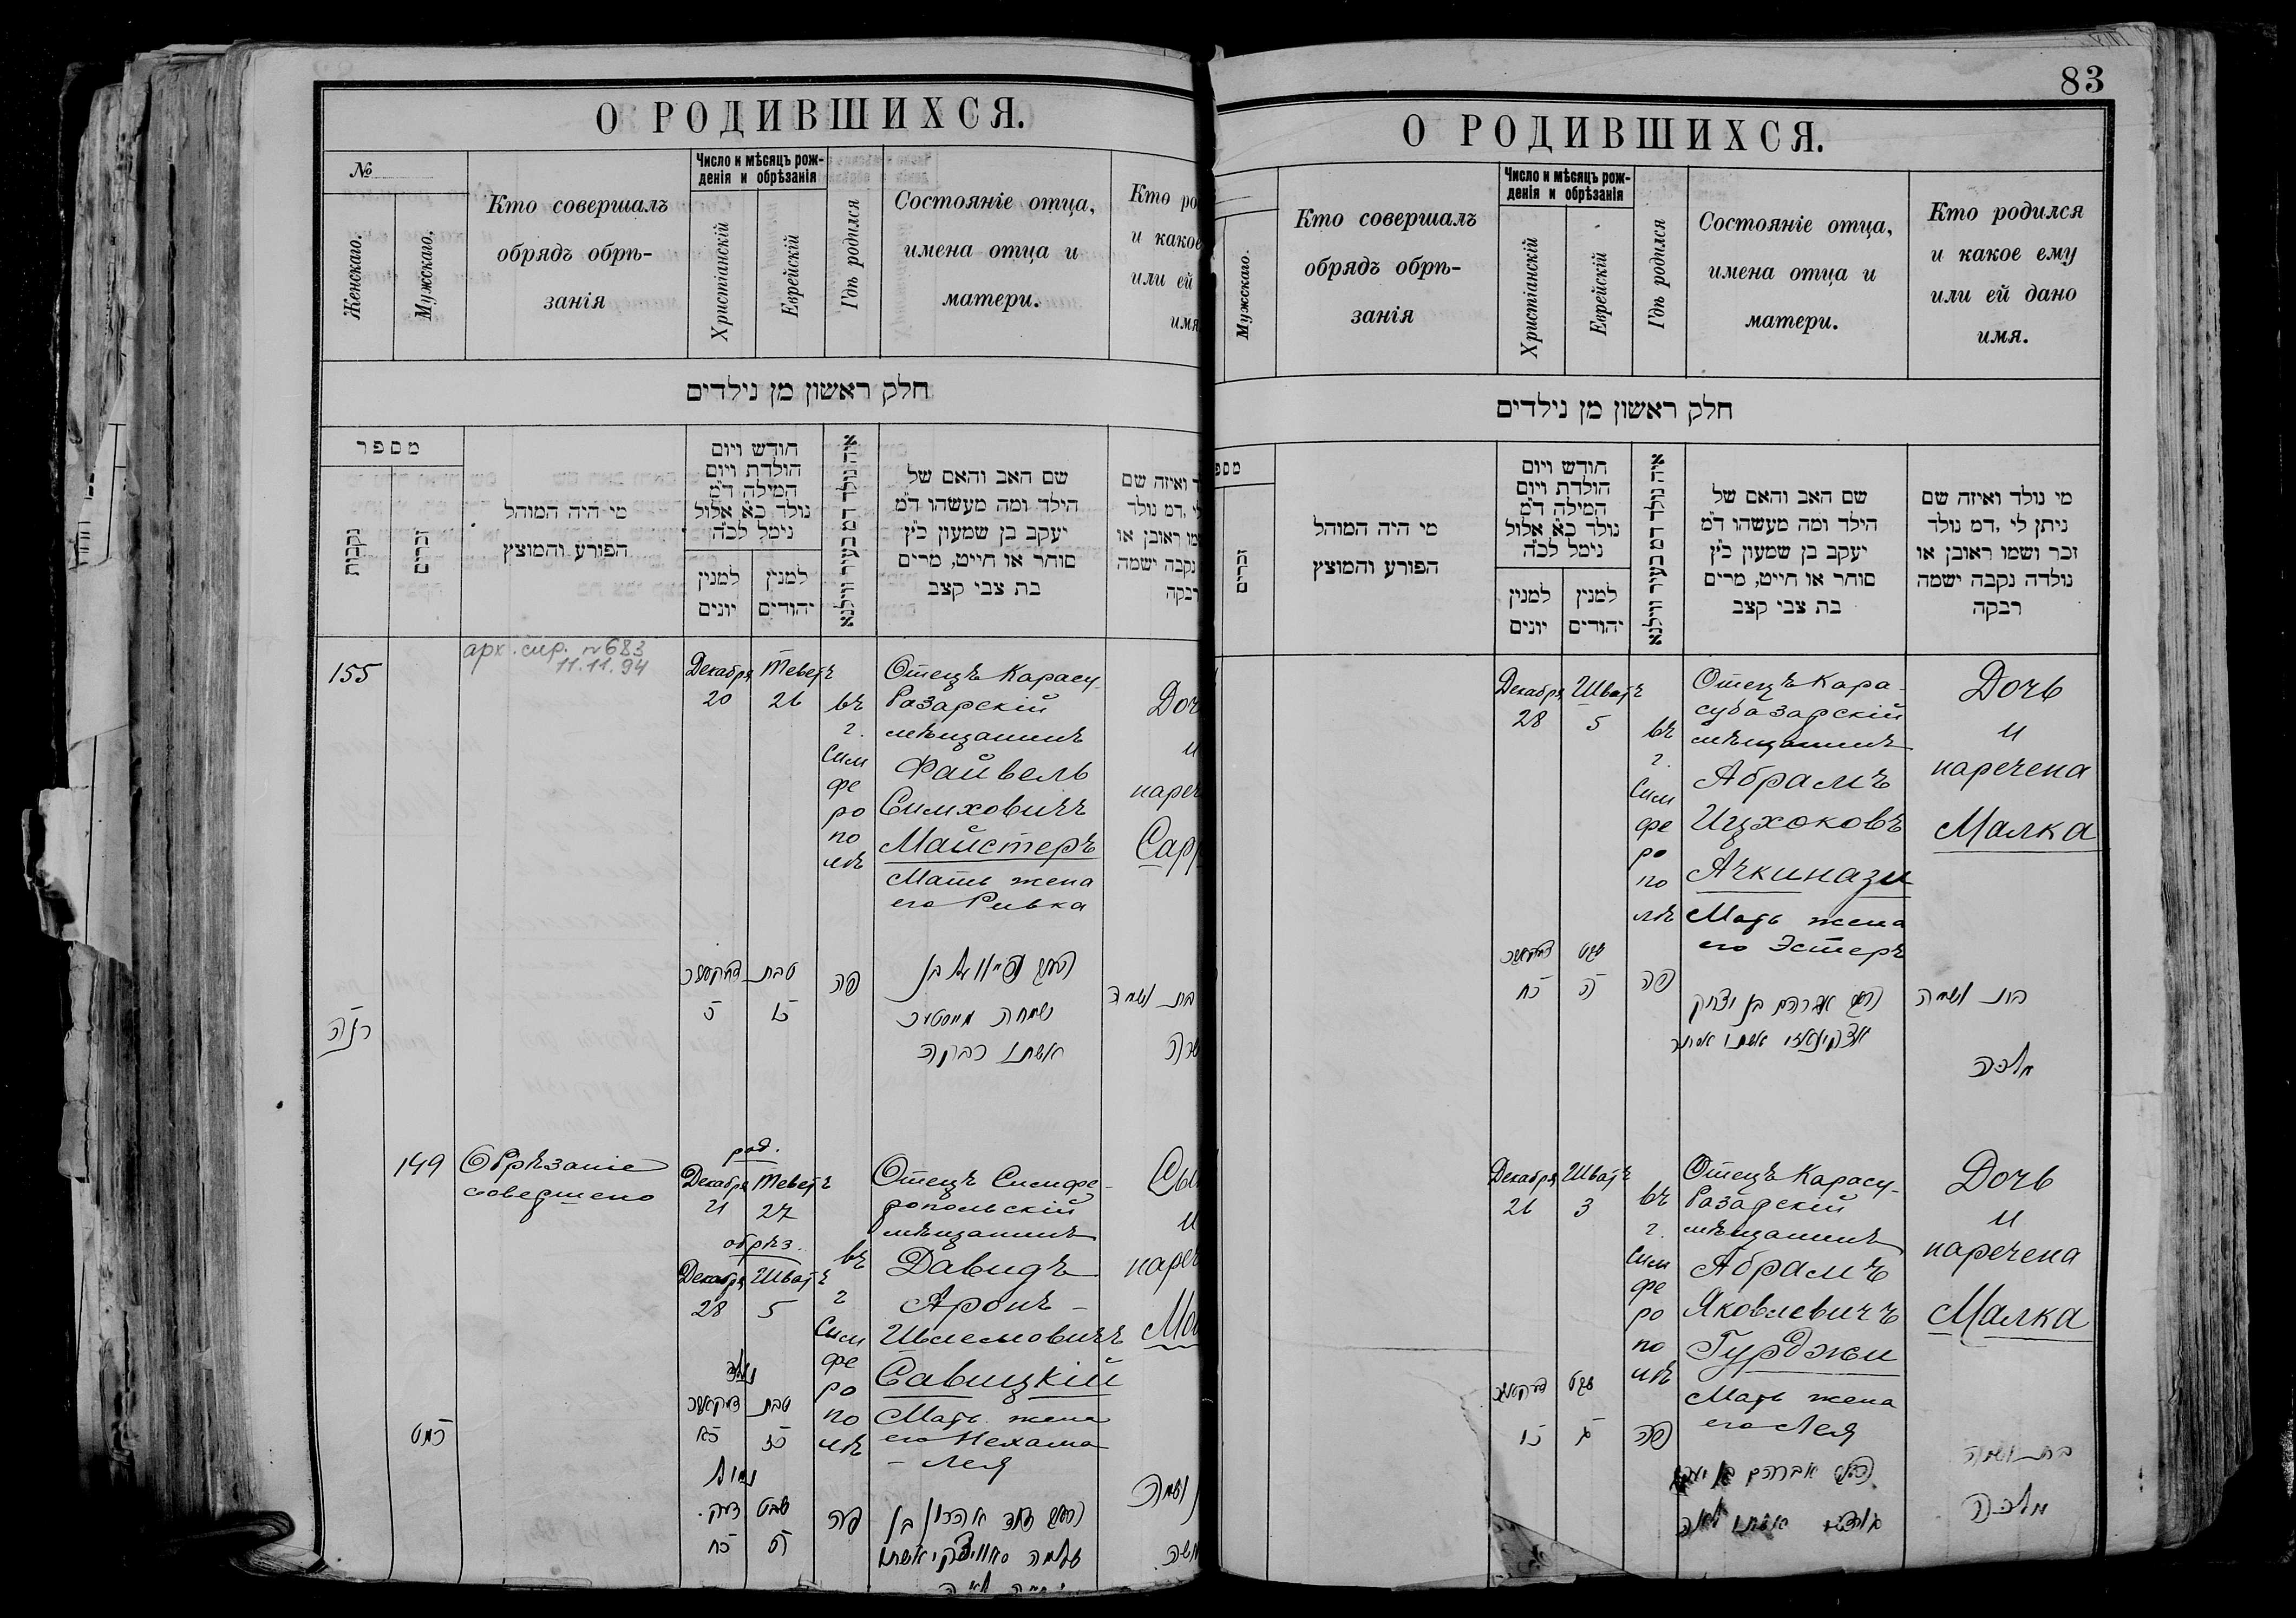 О РОДИВШИХСЯ.
№
Женскаго.
Мужскаго,
Кто совершалъ
обрядъ обрѣ-
занія
Число и мѣсяцъ рож-
денія и обрѣзанія
Христіанскій
Еврейскій
Гдѣ родился
Состояніе отца,
имена отца и
матери.
Кто ро
и какое
или ей
имя
חלק ראשון מן נילדים
מספר
נקבות
זכרים
מי היה המוהל
הפורע והמוצץ
חודש ויום
הולדת ויום
המילה ד"מ
נולד כ"א אלול
נימל לכ"ה
למנין
יונים
למנין
יהודים
איה נולד דמ בעיר ווילנא
שם האב והאם של
הילד ומה מעשהו ד"מ
יעקב בן שמעון כ"ץ
סוחר או חייט, מרים
בת צבי קצב
ואיזה שם
לי ,דמ נולד
שמו ראובן או
נקבה ישמה
רבקה
155
арх. спр. №683
11.11.94
Декабря
20
Теветъ
26
въ
г.
Сим
фе
ро
по
лѣ
Отецъ Карасу-
базарскій
мѣщанинъ
Файвель
Симховичъ
Майстеръ
Мать жена
его Ривка
Доч
и
нареч
Сарр
קנה
דעקאבער
כ
טבת
כו
פה
בן
שמחה מייסטער
אשתו רבקה
בת ושמה
שרה
149
Обрѣзаніе
совершено
род.
Декабря
21
Теветъ
27
обрѣз.
Декабря
28
Шватъ
5
въ
г
Сим
фе
ро
по
лѣ
Отецъ Симфе-
ропольскій
мѣщанинъ
Давидъ
Аронъ-
Шлемовичъ
Савицкій
Мать жена
его Нехама
- Лея
Сы
и
нареч
Мо
קמט
נולד
דעקאבער
כא
טבת
כז
נימול
דעק.
כח
שבט
ה
פה
דוד אהרון בן
שלמה סאוויצקי אשתו
ושמו
משה
83
О РОДИВШИХСЯ.
Мужскаго.
Кто совершалъ
обрядъ обрѣ-
занія
Число и мѣсяцъ рож-
денія и обрѣзанія
Христіанскій
Еврейскій
Гдѣ родился
Состояніе отца,
имена отца и
матери.
Кто родился
и какое ему
или ей дано
имя.
חלק ראשון מן נילדים
מספ
זכרים
מי היה המוהל
הפורע והמוצץ
חודש ויום
הולדת ויום
המילה ד"מ
נולד כ"א אלול
נימל לכ"ה
למנין
יונים
למנין
יהודים
איה נולד דמ בעיר ווילנא
שם האב והאם של
הילד ומה מעשהו ד"מ
יעקב בן שמעון כ"ץ
סוחר או חייט, מרים
בת צבי קצב
מי נולד ואיזה שם
ניתן לי ,דמ נולד
זכר ושמו ראובן או
נולדה נקבה ישמה
רבקה
Декабря
28
Шватъ
5
въ
г.
Сим
фе
ро
по
лѣ
Отецъ Кара-
субазарскій
мѣщанинъ
Абрамъ
Ицхоковъ
Ачкинази
Мать жена
его Эстеръ
Дочь
и
наречена
Малка
דעקאבער
כח
שבט
ה
פה
אברהם בן יצחק
אשתו אסתר
בת ושמה
מלכה
Декабря
26
Шватъ
3
въ
г.
Сим
фе
ро
по
лѣ
Отецъ Карасу-
базарскій
мѣщанинъ
Абрамъ
Яковлевичъ
Гурджи
Мать жена
его Лея
Дочь
и
наречена
Малка
דעקאבער
כו
שבט
ג
פה
אברהם בן יעקב
אשתו לאה
בת ושמה
מלכה